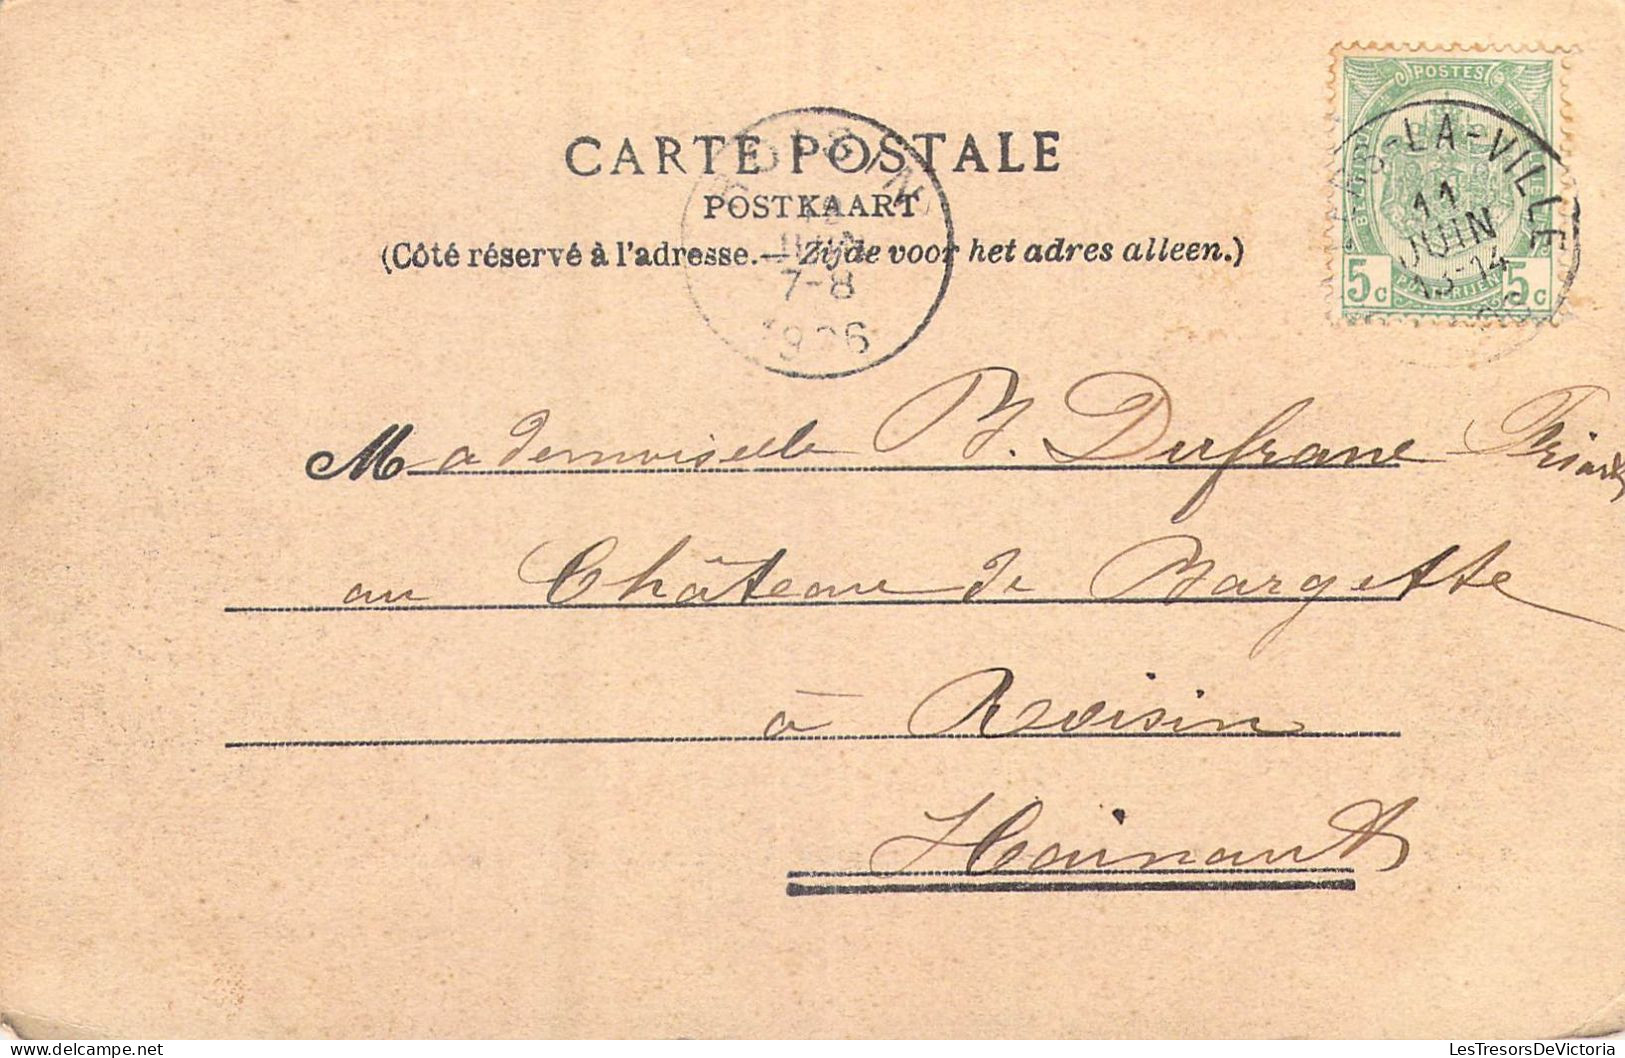 CARTE POSTALE
POSTKAART
(Côté réservé à l'adresse.— Zijde voor het adres alleen.)
POSTES
5c 5c
-LA-VILLE
11
JUIN
13-14
ROISIN
12
JUIN
7-8
1906
Mademoiselle B. Dufrane Friart
au Château de Bargette
à Roisin
Hainaut
LesTresorsDeVictoria